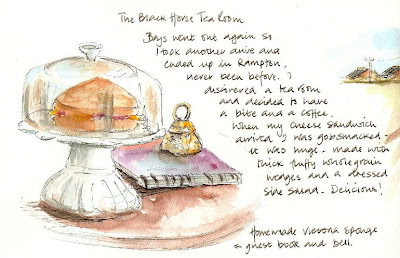 The Black Horse Tea Room
Boys went out again so
I took another drive and
ended up in Rampton,
never been before. I
discovered a tea room
and decided to have
a bite and a coffee.
When my cheese sandwich
arrived I was gobsmacked -
it was huge - made with
thick fluffy wholegrain
wedges and a dressed
side salad. Delicious!
Homemade Victoria Sponge
& guest book and bell.